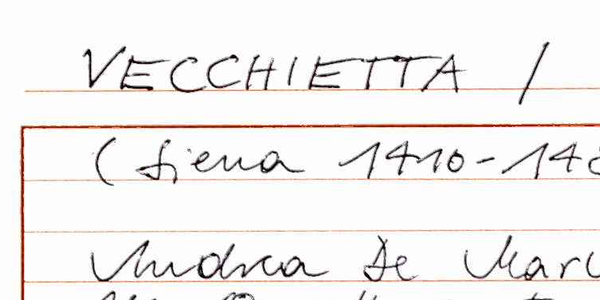 VECCHIETTA /
( Siena 1410-148
Andrea De Marc